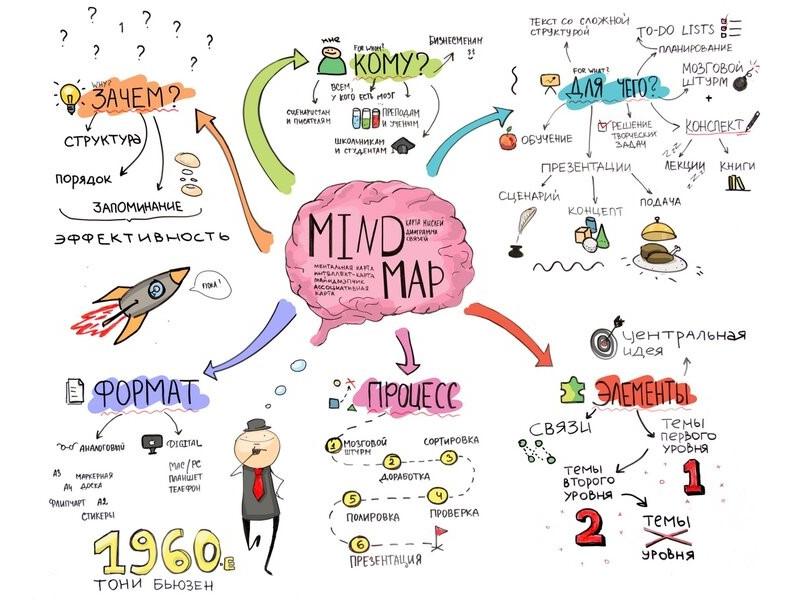 MIND MAP
КАРТА МЫСЛЕЙ
ДИАГРАММА
СВЯЗЕЙ
МЕНТАЛЬНАЯ КАРТА
ИНТЕЛЛЕКТ-КАРТА
МАЙНДМЭППИНГ
АССОЦИАТИВНАЯ
КАРТА
? ? ? 1 ? ? ? ? ?
WHY?
ЗАЧЕМ?
СТРУКТУРА
ПОРЯДОК
ЗАПОМИНАНИЕ
ЭФФЕКТИВНОСТЬ
мне
FOR WHOM?
КОМУ?
БИЗНЕСМЕНАМ
ВСЕМ,
У КОГО ЕСТЬ МОЗГ
СЦЕНАРИСТАМ
И ПИСАТЕЛЯМ
ПРЕПОДАМ
И УЧЕНЫМ
ШКОЛЬНИКАМ
И СТУДЕНТАМ
ТЕКСТ СО СЛОЖНОЙ
СТРУКТУРОЙ
TO-DO LISTS
ПЛАНИРОВАНИЕ
FOR WHAT?
ДЛЯ ЧЕГО?
МОЗГОВОЙ
ШТУРМ
+
ОБУЧЕНИЕ
РЕШЕНИЕ
ТВОРЧЕСКИХ
ЗАДАЧ
КОНСПЕКТ
ПРЕЗЕНТАЦИИ
ЛЕКЦИИ
КНИГИ
СЦЕНАРИЙ
КОНЦЕПТ
ПОДАЧА
ФОРМАТ
АНАЛОГОВЫЙ
DIGITAL
А3
А4
МАРКЕРНАЯ
ДОСКА
ФЛИПЧАРТ
А2
СТИКЕРЫ
MAC/PC
ПЛАНШЕТ
ТЕЛЕФОН
1960.Е
ТОНИ БЬЮЗЕН
ПРОЦЕСС
1
МОЗГОВОЙ
ШТУРМ
2
ДОРАБОТКА
3
СОРТИРОВКА
4
ПРОВЕРКА
5
ПОЛИРОВКА
6
ПРЕЗЕНТАЦИЯ
ЦЕНТРАЛЬНАЯ
ИДЕЯ
ЭЛЕМЕНТЫ
СВЯЗИ
ТЕМЫ
ПЕРВОГО
УРОВНЯ
1
ТЕМЫ
ВТОРОГО
УРОВНЯ
2
ТЕМЫ
X
УРОВНЯ